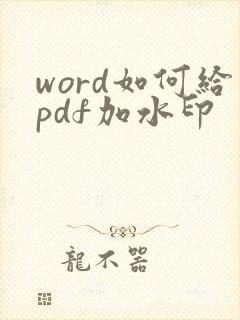 word如何給
pdf加水印
龍不器